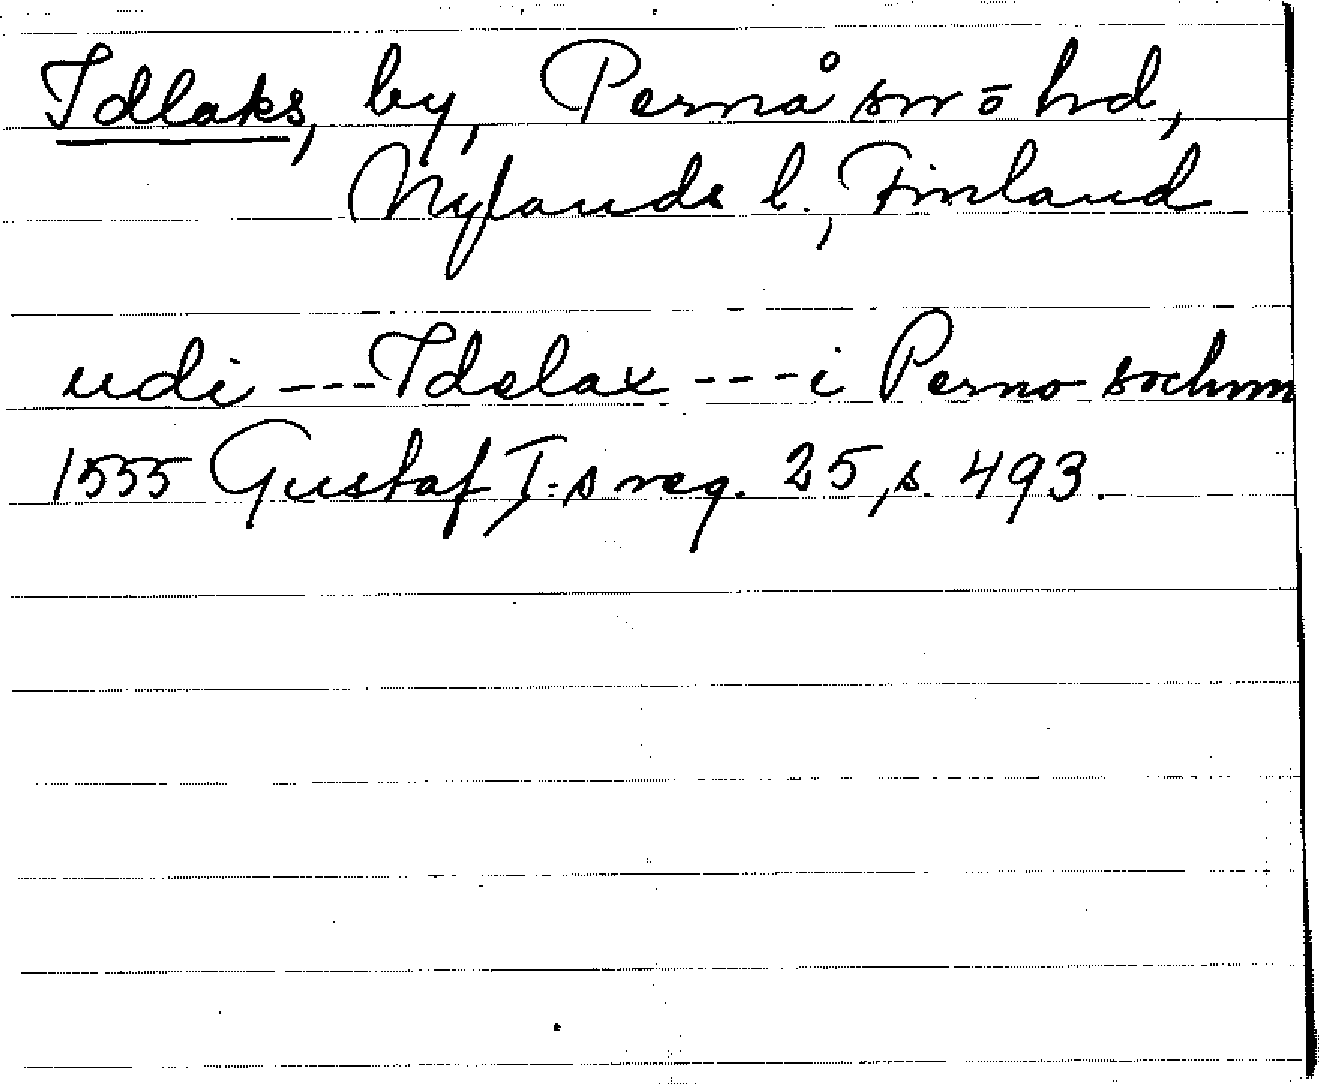 Idlaks, by, Pernå sn o hd,
Nylands l., Finland
udi --- Idelax --- i Perno sochnn
1555 Gustaf I:s reg. 25, s. 493.